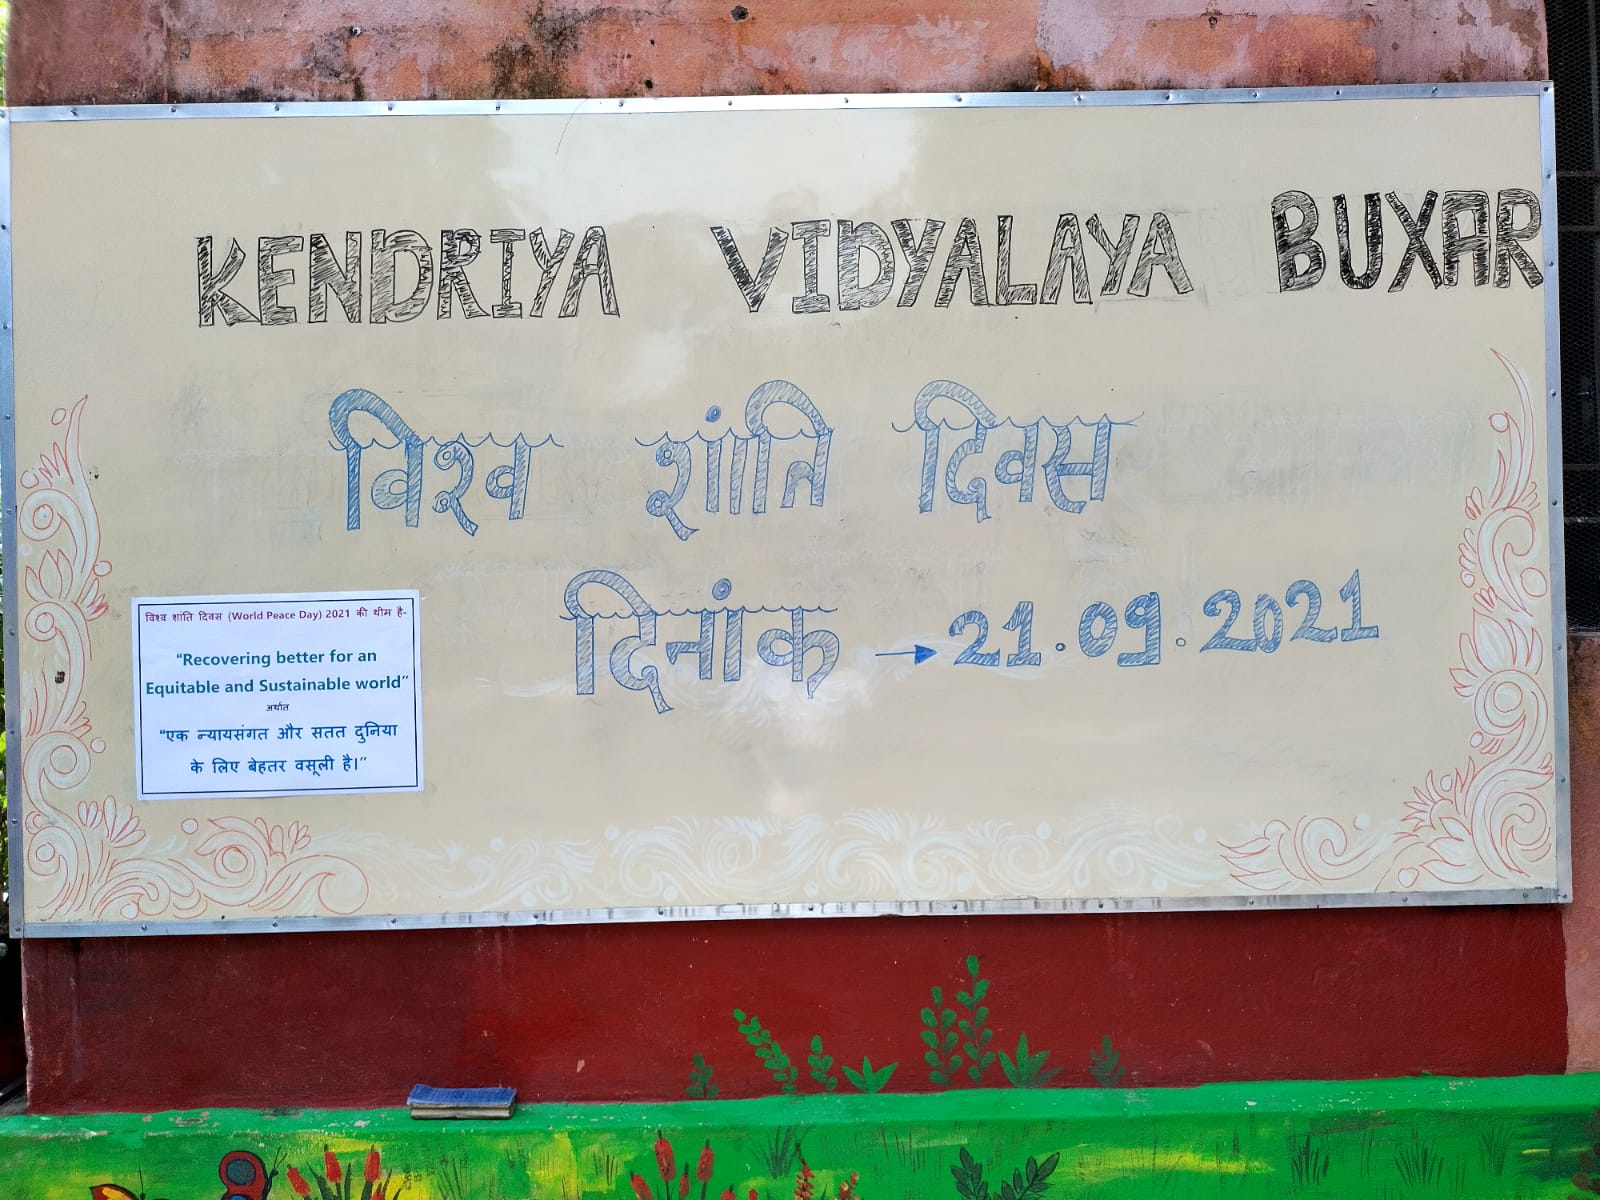 KENDRIYA VIDYALAYA BUXAR
विश्व शांति दिवस
दिनांक → 21.09.2021
विश्व शांति दिवस (World Peace Day) 2021 की थीम है-
“Recovering better for an
Equitable and Sustainable world”
अर्थात
“एक न्यायसंगत और सतत दुनिया
के लिए बेहतर वसूली है।”